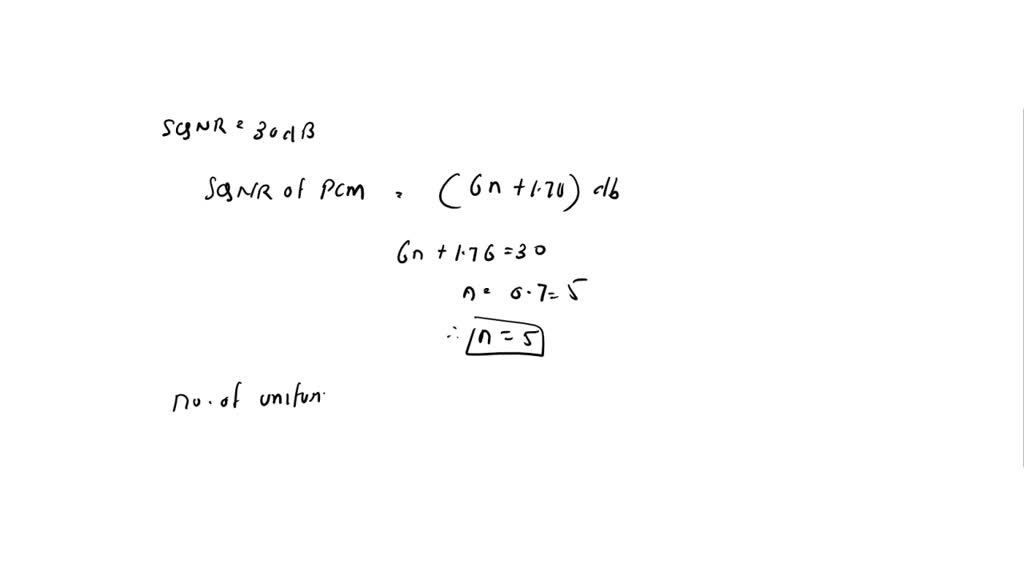 SQNR = 30dB
SQNR of PCM = (6n + 1.76) db
6n + 1.76 = 30
n = 6.7 = 5
∴ n = 5
no. of unifun.